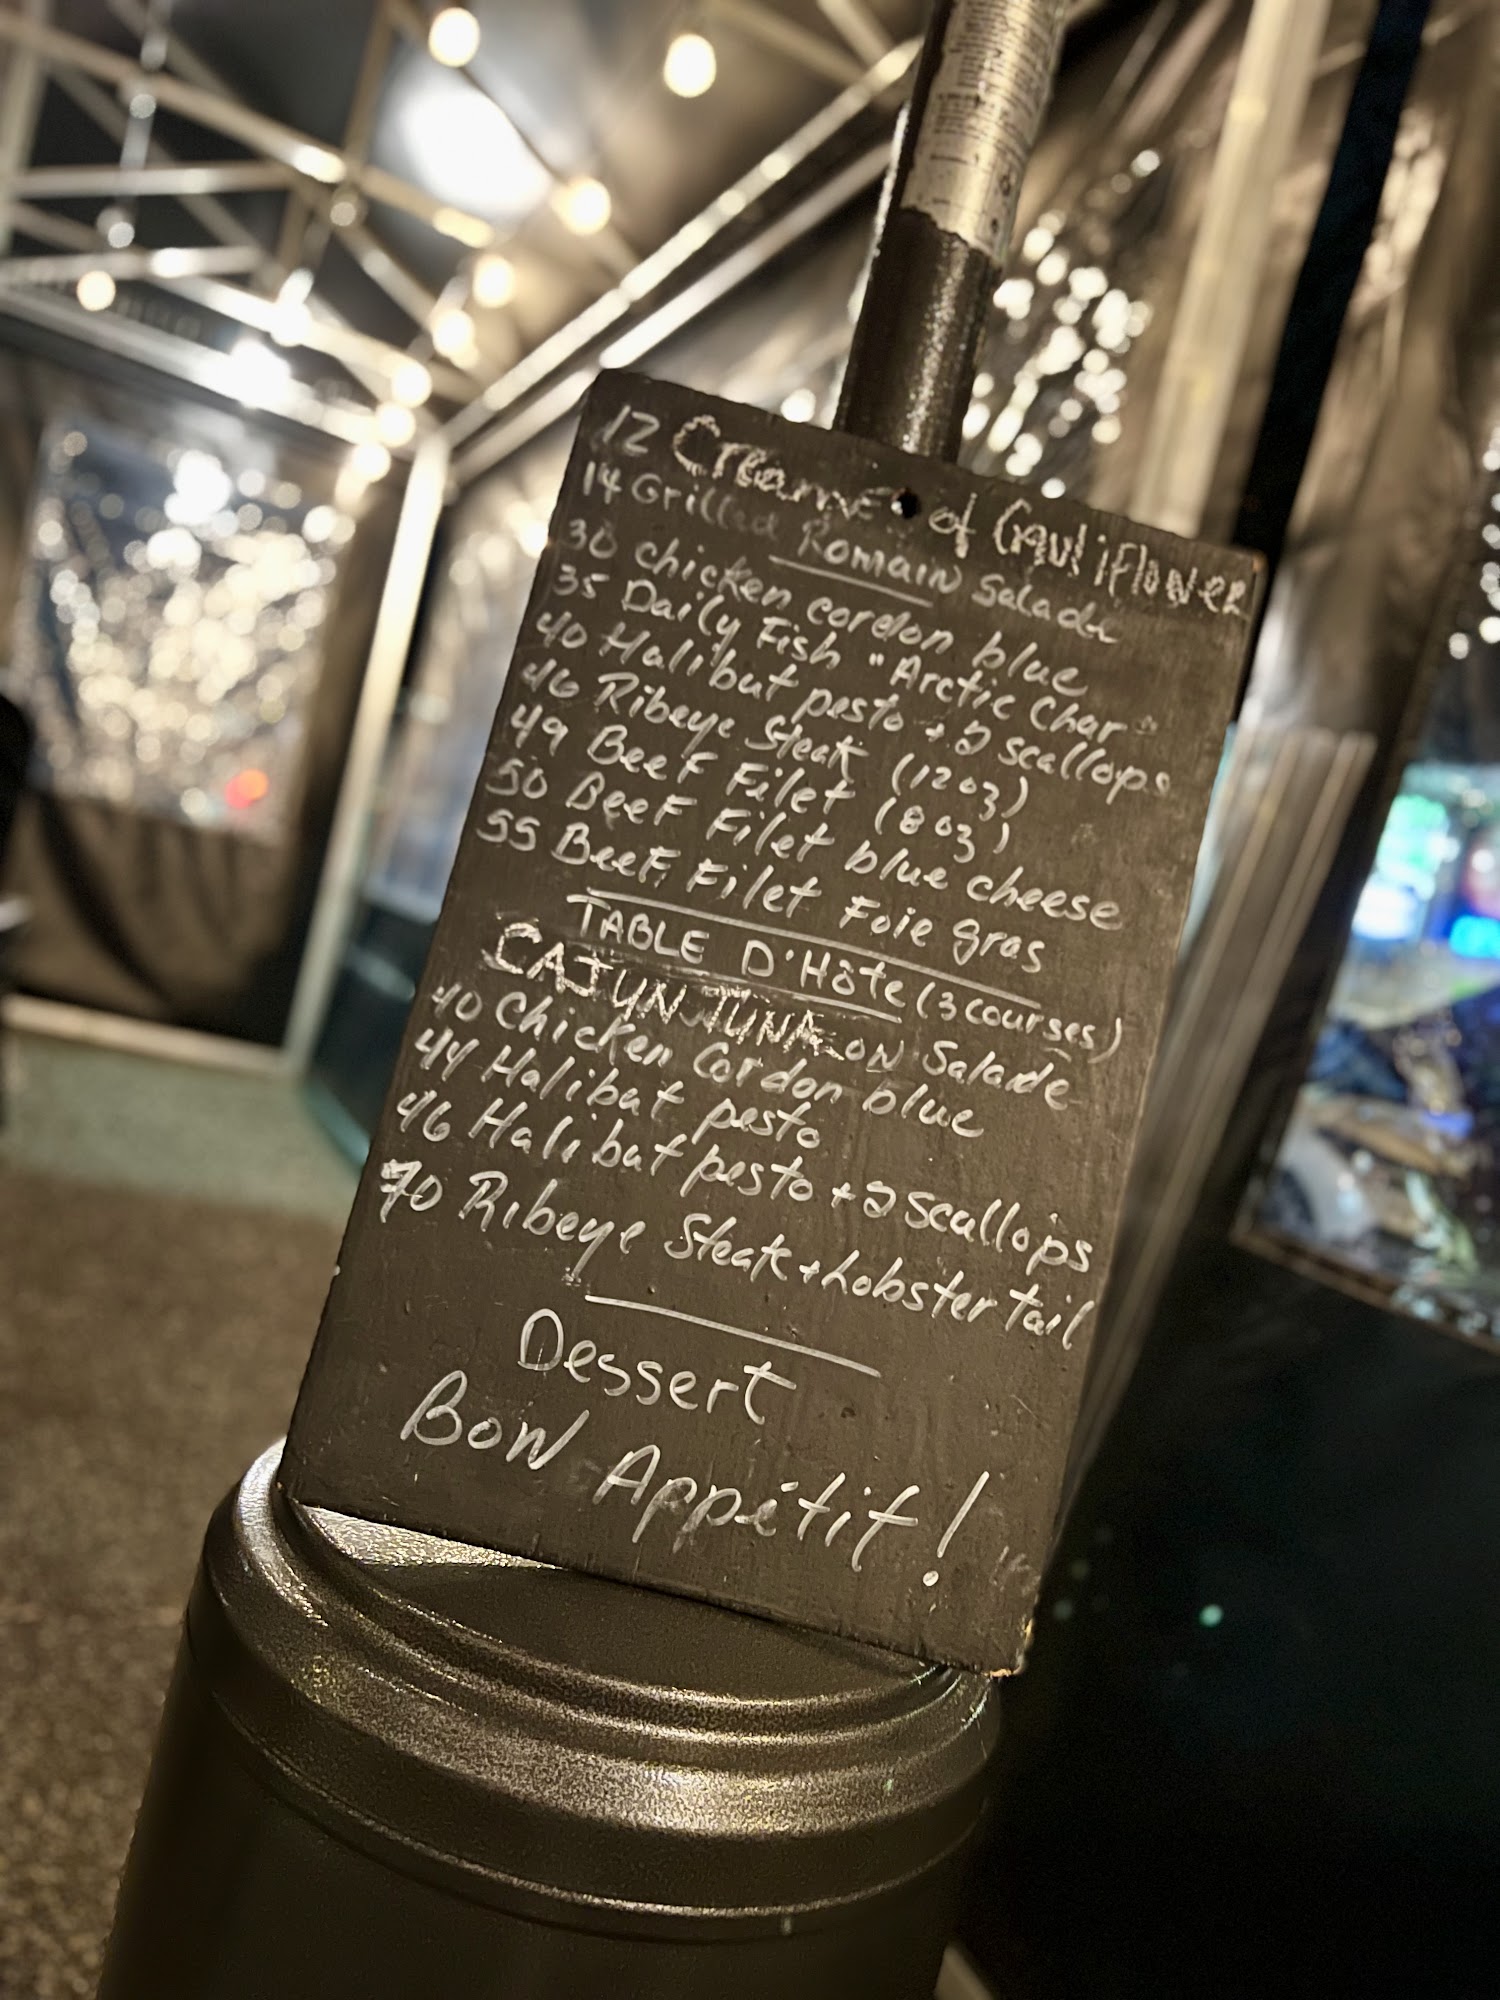 12 Creame of Cauliflower
14 Grilled Romain Salade
30 chicken cordon blue
35 Daily Fish "Arctic Char"
40 Halibut pesto + 2 scallops
46 Ribeye Steak (12 oz)
49 Beef Filet (8 oz)
50 Beef Filet blue cheese
55 Beef Filet Foie gras
TABLE D'Hôte (3 courses)
CAJUN TUNA ON Salade
40 Chicken Cordon blue
44 Halibut pesto
46 Halibut pesto + 2 scallops
70 Ribeye Steak + Lobster tail
Dessert
Bon Appétit!